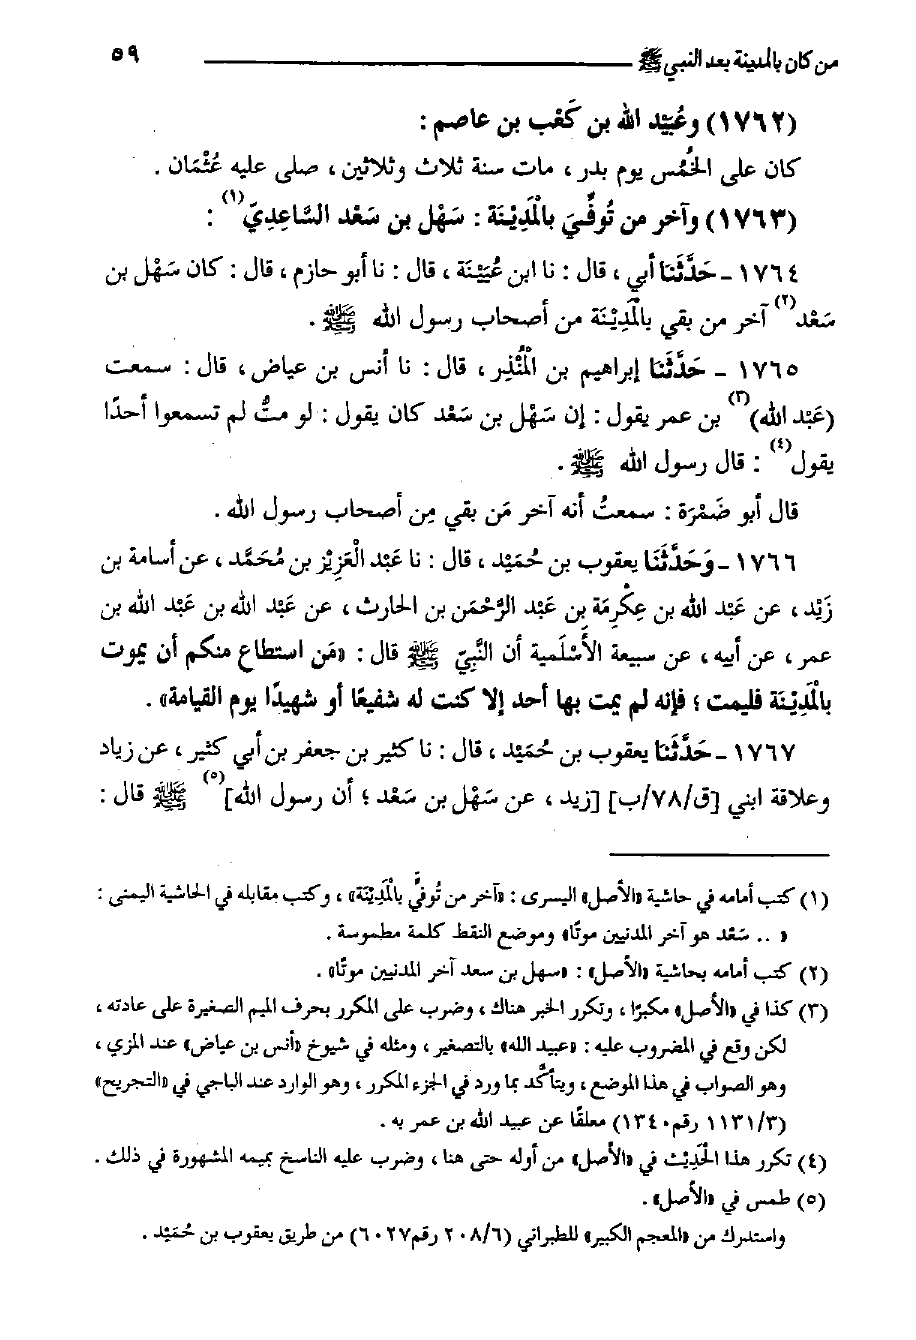 من كان بالمدينة بعد النبي ﷺ ٥٩
(١٧٦٢) وعُبَيْد الله بن كَعْب بن عاصم :
كان على الخُمُس يوم بدر ، مات سنة ثلاث وثلاثين ، صلى عليه عُثْمَان .
(١٧٦٣) وآخر من تُوفِّيَ بالْمَدِيْنَة : سَهْل بن سَعْد السَّاعِدِيّ(١) :
١٧٦٤ - حَدَّثَنَا أبي ، قال : نا ابن عُيَيْنَة ، قال : نا أبو حازم ، قال : كان سَهْل بن
سَعْد(٢) آخر من بقي بالْمَدِيْنَة من أصحاب رسول الله ﷺ .
١٧٦٥ - حَدَّثَنَا إبراهيم بن الْمُنْذِر ، قال : نا أنس بن عياض ، قال : سمعت
(عَبْد الله)(٣) بن عمر يقول : إن سَهْل بن سَعْد كان يقول : لو متُّ لم تسمعوا أحدًا
يقول(٤) : قال رسول الله ﷺ .
قال أبو ضَمْرَة : سمعتُ أنه آخر مَن بقي مِن أصحاب رسول الله .
١٧٦٦ - وَحَدَّثَنَا يعقوب بن حُمَيْد ، قال : نا عَبْد الْعَزِيْز بن مُحَمَّد ، عن أسامة بن
زَيْد ، عن عَبْد الله بن عِكْرِمَة بن عَبْد الرَّحْمَن بن الحارث ، عن عَبْد الله بن عَبْد الله بن
عمر ، عن أبيه ، عن سبيعة الأَسْلَمية أن النَّبِيّ ﷺ قال : «مَن استطاع منكم أن يموت
بالْمَدِيْنَة فليمت ؛ فإنه لم يمت بها أحد إلا كنت له شفيعًا أو شهيدًا يوم القيامة» .
١٧٦٧ - حَدَّثَنَا يعقوب بن حُمَيْد ، قال : نا كثير بن جعفر بن أبي كثير ، عن زياد
وعلاقة ابني [ق/٧٨/ب] [زيد ، عن سَهْل بن سَعْد ؛ أن رسول الله](٥) ﷺ قال :
(١) كتب أمامه في حاشية «الأصل» اليسرى : «آخر من تُوفِّيَ بالْمَدِيْنَة» ، وكتب مقابله في الحاشية اليمنى :
« .. سَعْد هو آخر المدنيين موتًا» وموضع النقط كلمة مطموسة .
(٢) كتب أمامه بحاشية «الأصل» : «سهل بن سعد آخر المدنيين موتًا» .
(٣) كذا في «الأصل» مكبرًا ، وتكرر الخبر هناك ، وضرب على المكرر بحرف الميم الصغيرة على عادته ،
لكن وقع في المضروب عليه : «عبيد الله» بالتصغير ، ومثله في شيوخ «أنس بن عياض» عند المزي ،
وهو الصواب في هذا الموضع ، ويتأكَّد بما ورد في الجزء المكرر ، وهو الوارد عند الباجي في «التجريح»
(٣/ ١١٣١ رقم١٣٤٠) معلقًا عن عبيد الله بن عمر به .
(٤) تكرر هذا الْحَدِيْث في «الأصل» من أوله حتى هنا ، وضرب عليه الناسخ بميمه المشهورة في ذلك .
(٥) طمس في «الأصل» .
واستدرك من «المعجم الكبير» للطبراني (٦/ ٢٠٨ رقم٦٠٢٧) من طريق يعقوب بن حُمَيْد .